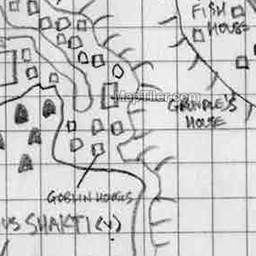 FISH
HOUSE
MapTiler.com
GRUNDLE'S
HOUSE
GOBLIN HOUSES
US SHAKTI (V)